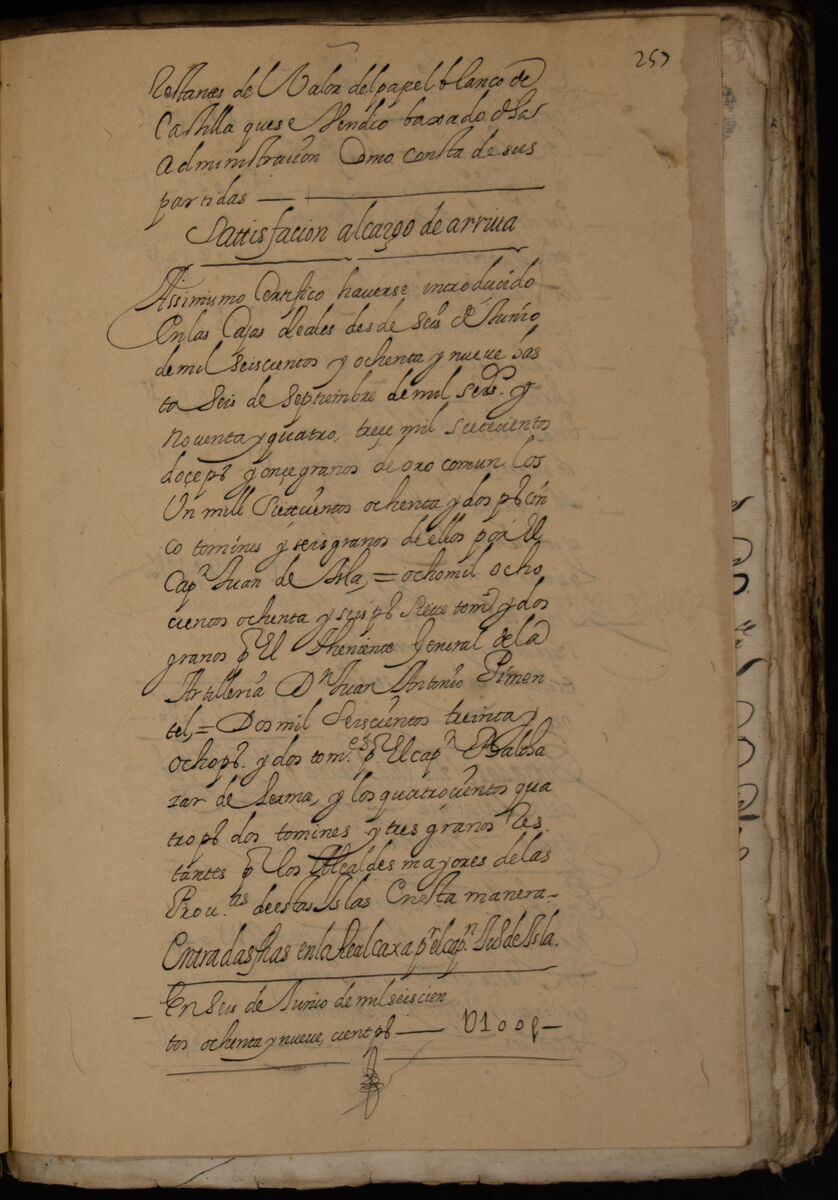 257
restantes del Valor del papel blanco de
Castilla que se Vendio baxado de las
Administracion Como consta de sus
partidas —
Sattisfacion al cargo de arriua
Assimismo Certifico hauerse introducido
En las Cajas Reales desde seis de Junio
de mil seiscientos y ochenta y nueue has
ta seis de septiembre de mil seisos. y
nouenta y quatro, treçe mil setecientos
doçe ps y onçe granos de oro comun los
Un mill setecientos ochenta y dos ps cin
co tomines y seis granos de ellos por El
Capn Juan de Isla, = ocho mil ocho
cientos ochenta y seis ps siete toms y dos
granos pr El Theniente General de la
Artilleria Dn Juan Antonio Pimen
tel, = Dos mil seiscientos treinta y
ocho ps. y dos tom.es pr El capn Baltha
zar de Lerma, y los quatrocientos qua
tro ps dos tomines y tres granos res
tantes pr los Alcaldes mayores de las
Prou.as de estas Islas En esta manera —
Entradas fhas en la Real caxa pr el capn. Jud de Isla.
— En seis de Junio de mil seiscien
tos ochenta y nueue, cient ps — U100 ps —